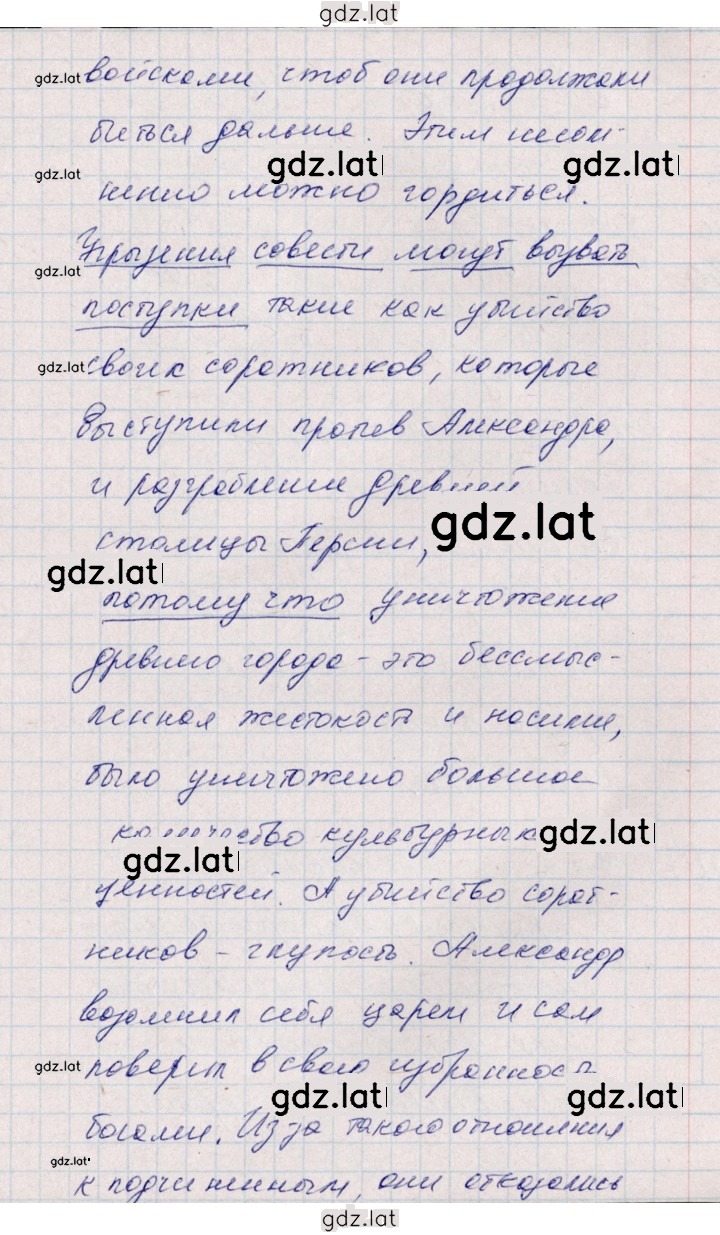 gdz.lat
gdz.lat войсками, чтоб они продолжали
биться дальше. Этим несом-
gdz.lat gdz.lat gdz.lat
ненно можно гордиться.
Угрызения совести могут вызвать
gdz.lat
поступки такие как убийство
gdz.lat своих соратников, которые
выступили против Александра,
и разграбление древней
gdz.lat
столицы Персии,
gdz.lat
потому что уничтожение
древнего города - это бессмыс-
ленная жестокость и насилие,
было уничтожено большое
количество культурных gdz.lat
gdz.lat
ценностей. А убийство сорат-
ников - глупость. Александр
возомнил себя царем и сам
gdz.lat поверил в свою избранность
gdz.lat gdz.lat
богами. Из за такого отношения
gdz.lat
к подчиненным, они отказались
gdz.lat